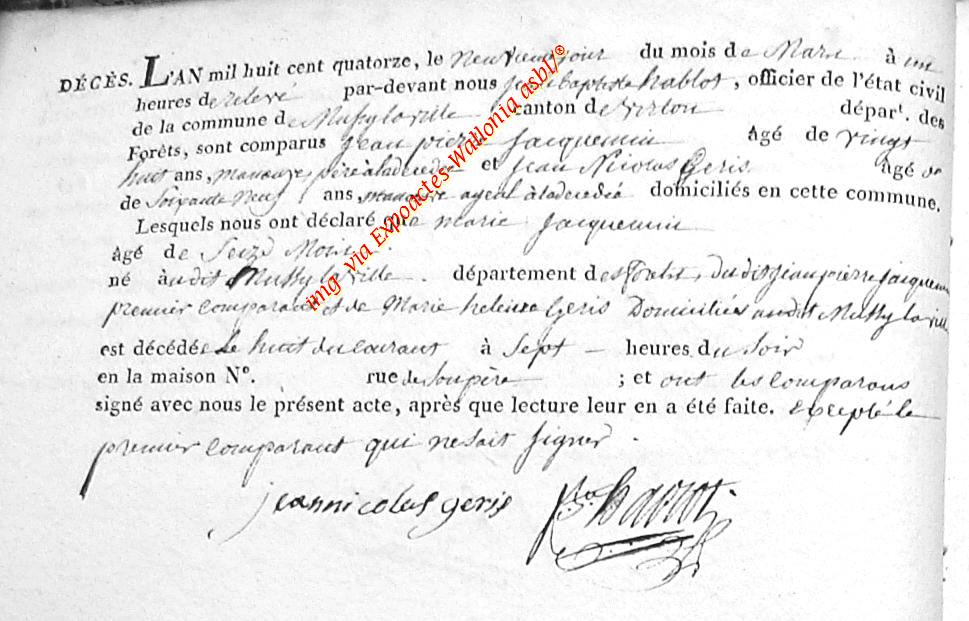 DÉCÈS. L'AN mil huit cent quatorze, le Neuvieme jour du mois de Mars à une
heures de relevé par-devant nous Jean baptiste hablot, officier de l'état civil
de la commune de Mussy la ville canton de Virton départ. des
Forêts, sont comparus Jean pierre Jacquemin âgé de vingt
huit ans, manœuvre, père à la décédée et Jean Nicolas Geris âgé de
de Soixante Neuf ans, manœuvre ayeul à la décédée domiciliés en cette commune.
Lesquels nous ont déclaré que marie Jacquemin
âgé de Seize Mois
né à udit Mussy la ville département des forêts, du dit Jean pierre Jacquemin
premier comparant et de Marie heleine Geris Domiciliés audit Mussy la ville
est décédée le huit du courant à Sept heures du Soir
en la maison N°. rue de ; et ont les comparans
signé avec nous le présent acte, après que lecture leur en a été faite. Excepté le
premier comparant qui ne sait signer.
jean nicolas geris
img via Expoactes-Wallonia asbl/®